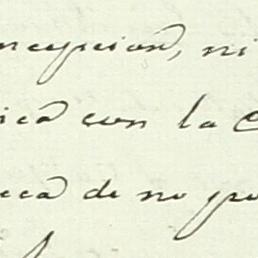 ncepcion, ni
ica con la C
eca de no po